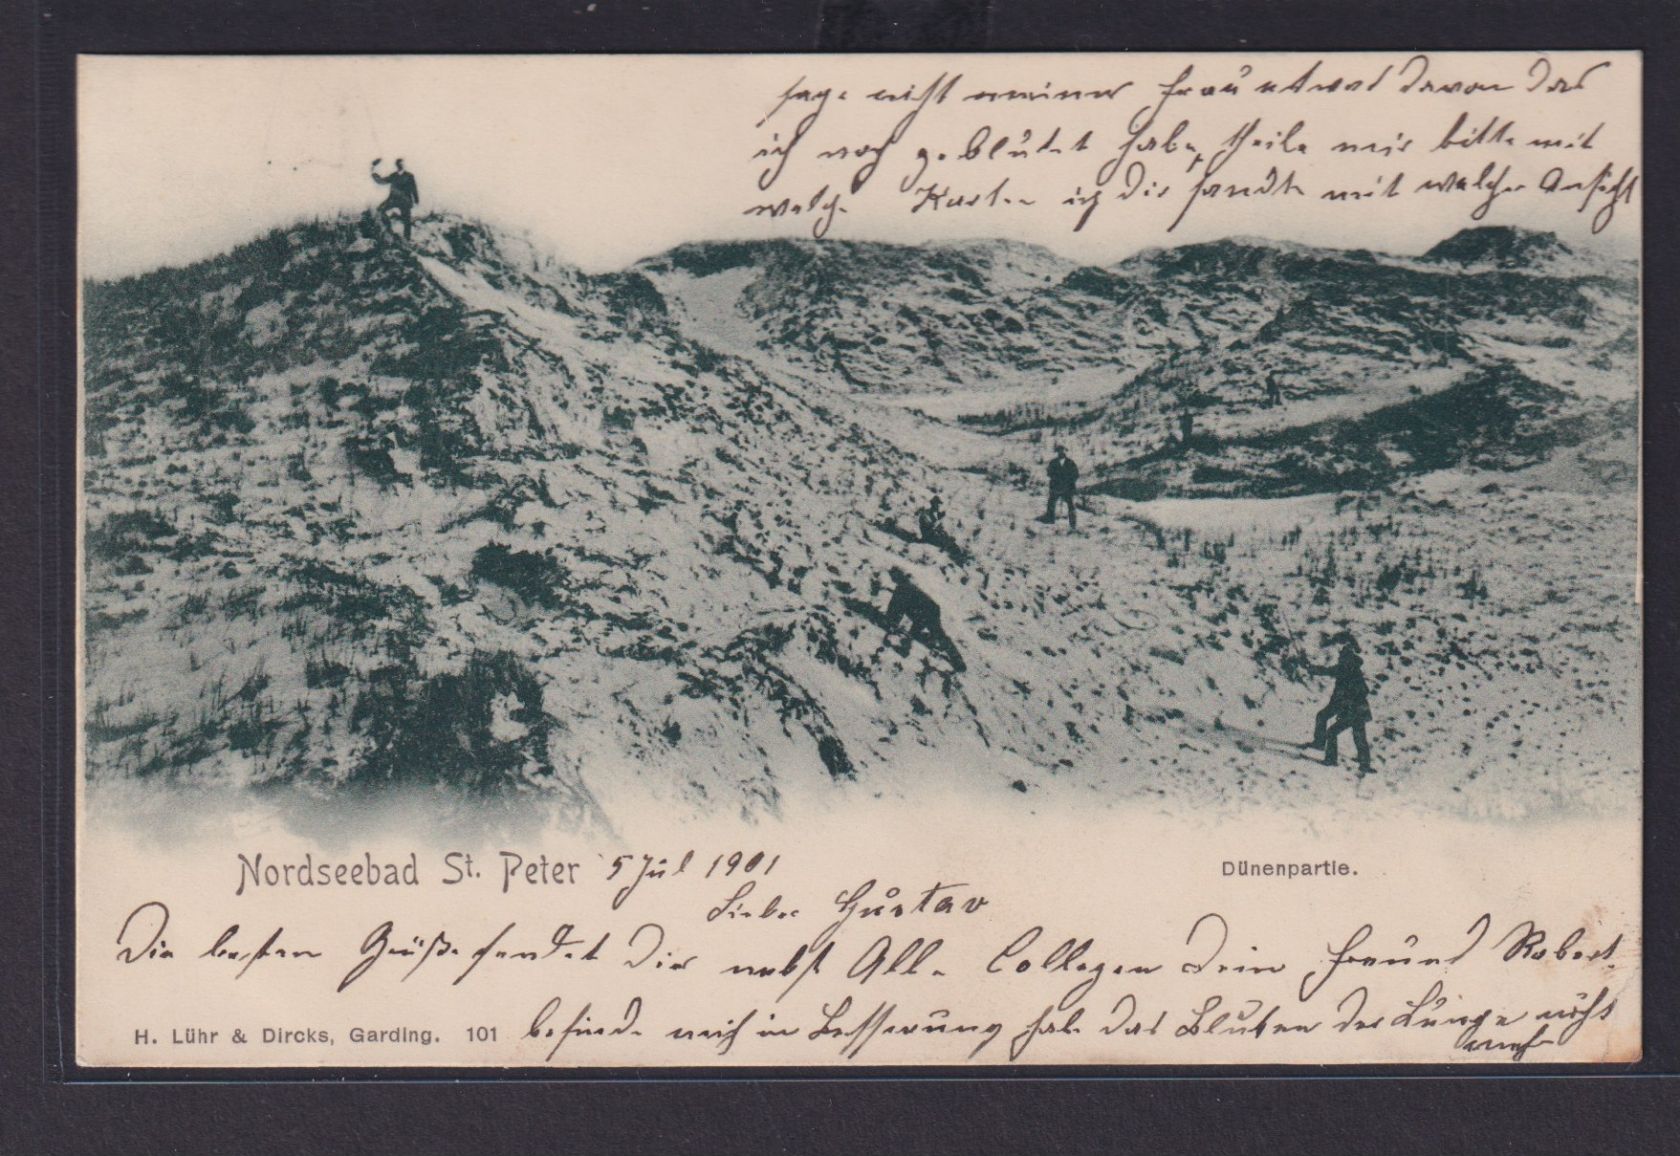 sage nicht meiner Frau etwas davon das
ich noch geblutet habe, theile mir bitte mit
welche Karten ich Dir sandte mit welcher Ansicht
Nordseebad St. Peter 5 Jul 1901
Dünenpartie.
Lieber Gustav
Die besten Grüße sendet Dir nebst Alle Collegen Dein Freund Robert.
H. Lühr & Dircks, Garding. 101
befinde mich in Besserung habe das Bluten der Lunge nicht
mehr